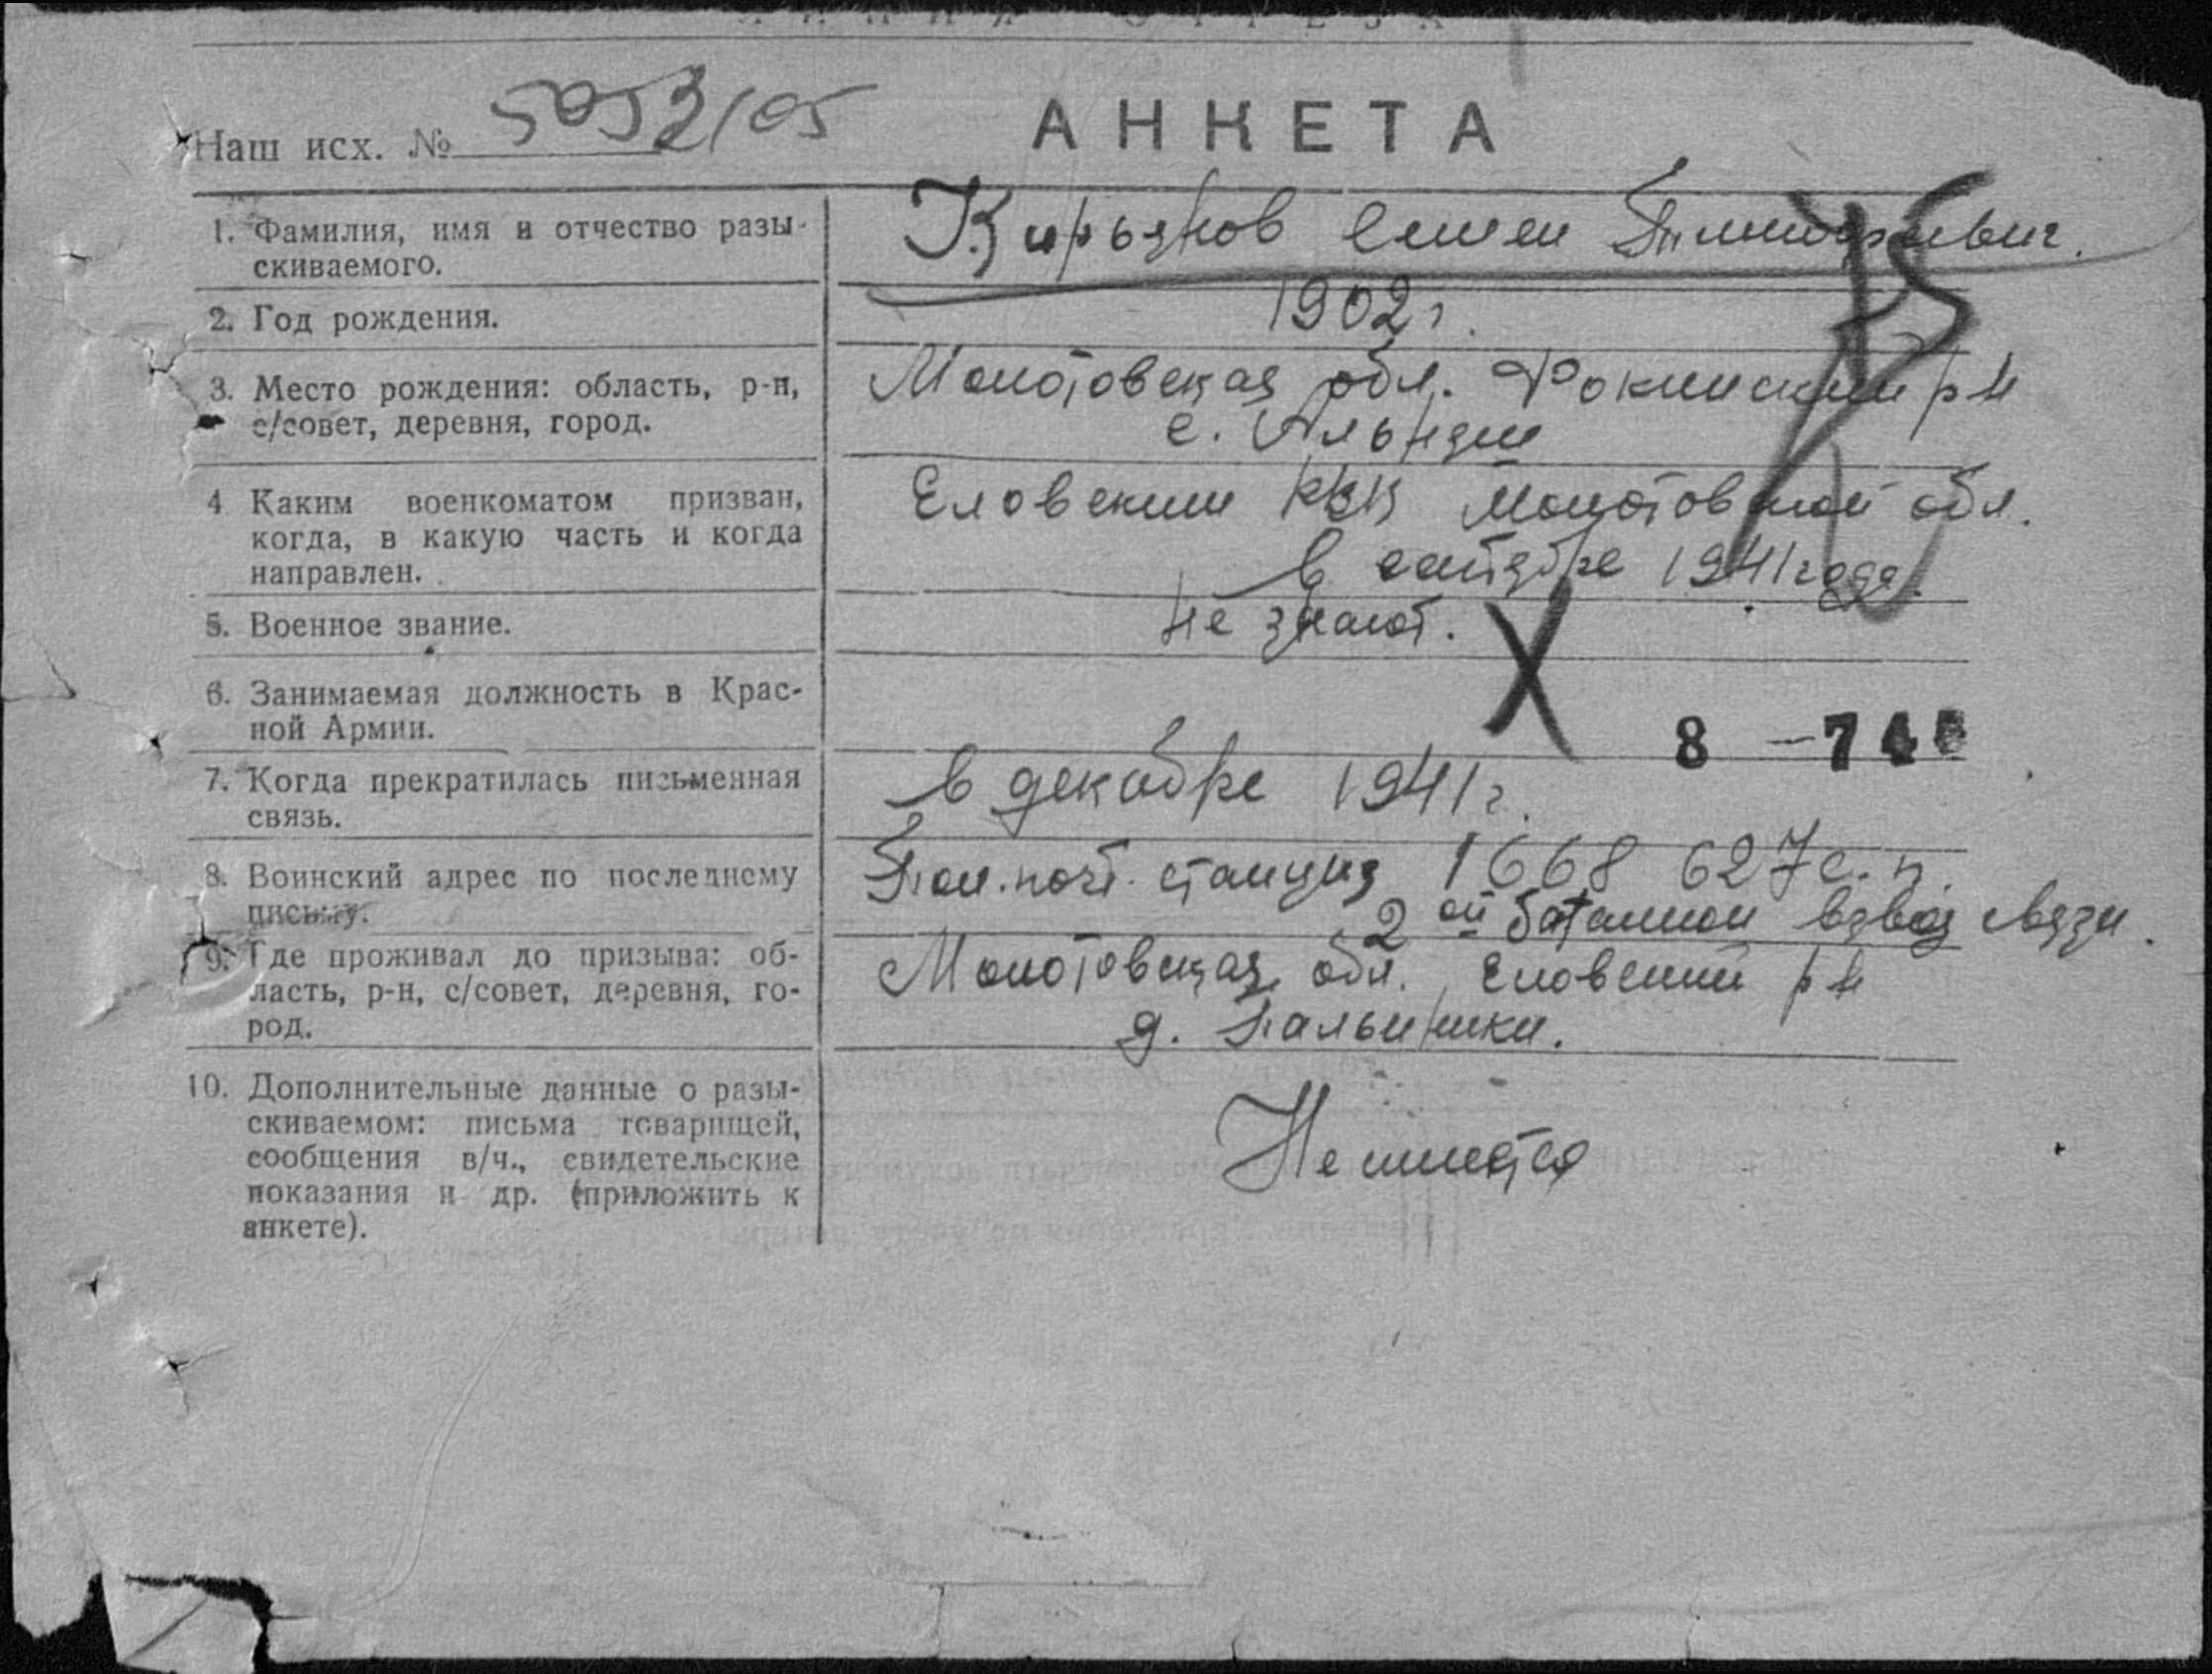 ЛИНИЯ ОТРЕЗА
Наш исх. № 5053/05
АНКЕТА
1. Фамилия, имя и отчество разы-
скиваемого.
Кирьянов Семен
2. Год рождения.
1902 г.
3. Место рождения: область, р-н,
с/совет, деревня, город.
Молотовская обл. Фокинский р-н
с. Альняш
4 Каким военкоматом призван,
когда, в какую часть и когда
направлен.
Еловским РВК Молотовской обл.
в сентябре 1941 года.
5. Военное звание.
не знают.
6. Занимаемая должность в Крас-
ной Армии.
8 — 74
7. Когда прекратилась письменная
связь.
в декабре 1941 г.
8. Воинский адрес по последнему
письму.
Пол. почт. станция 1668 627 с. п.
2ой баталион взвод связи.
9. Где проживал до призыва: об-
ласть, р-н, с/совет, деревня, го-
род.
Молотовская обл. Еловский р-н
д.
10. Дополнительные данные о разы-
скиваемом: письма товарищей,
сообщения в/ч., свидетельские
показания и др. (приложить к
анкете).
Не имеется